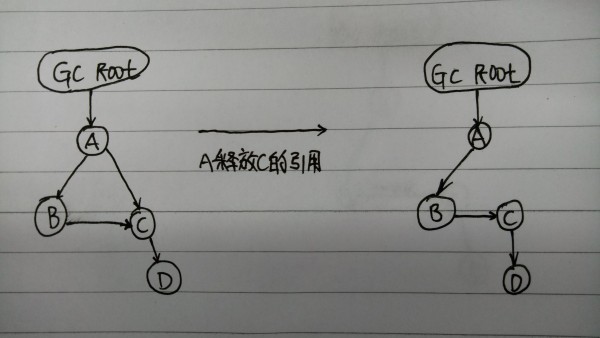 GC Root
A
B
C
D
A释放C的引用
GC Root
A
B
C
D